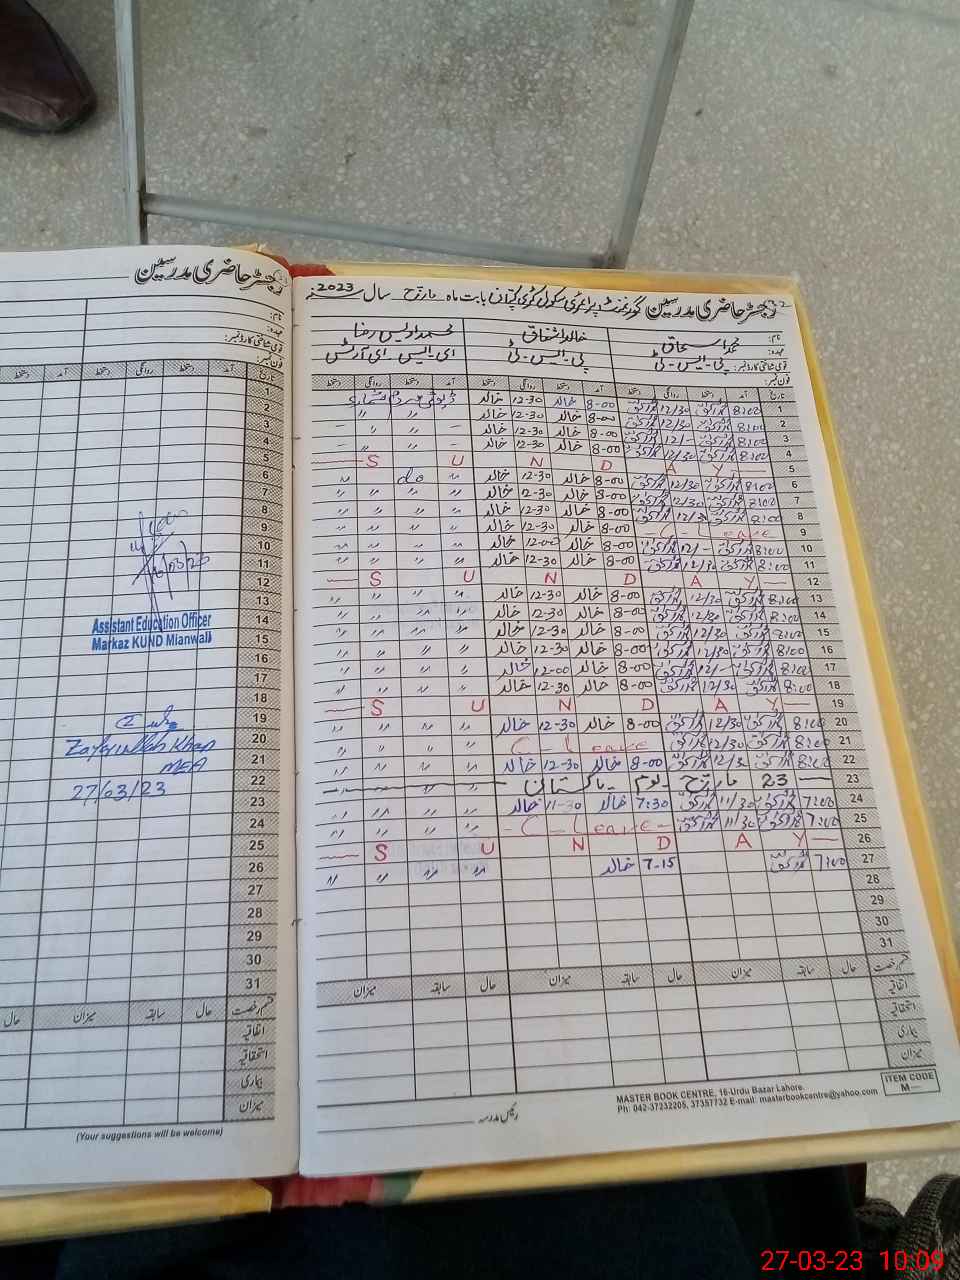 رجسٹر حاضری مدرسین گورنمنٹ پرائمری سکول بابت ماہ مارچ سال 2023
نام: محمد اسحاق خالد اشفاق محمد اویس رضا
عہدہ: پی۔ایس۔ٹی پی۔ایس۔ٹی ای۔ایس۔ای آرٹس
قومی شناختی کارڈ نمبر:
فون نمبر:
تاریخ آمد دستخط روانگی دستخط آمد دستخط روانگی دستخط آمد دستخط روانگی دستخط
1 8:00 12/30 8-00 خالد 12-30 خالد ڈیوٹی مردم شماری
2 8:00 12/30 8-00 خالد 12-30 خالد – 〃 〃
3 8:00 12/- 8-00 خالد 12-30 خالد – 〃 〃
4 8:00 12/30 8-00 خالد 12-30 خالد – 〃 –
5 S U N D A Y
6 8:00 12/30 8-00 خالد 12-30 خالد 〃 do 〃
7 8:00 12/30 8-00 خالد 12-30 خالد 〃 〃 〃 〃
8 8:00 12/30 8-00 خالد 12-30 خالد 〃 〃 〃 〃
9 C-Leave 8-00 خالد 12-30 خالد 〃 〃 〃 〃
10 8:00 12/- 8-00 خالد 12-00 خالد 〃 〃 〃 〃
11 8:00 12/30 8-00 خالد 12-30 خالد 〃 〃 〃 〃
12 S U N D A Y
13 8:00 12/30 8-00 خالد 12-30 خالد 〃 〃 〃 〃
14 8:00 12/30 8-00 خالد 12-30 خالد 〃 〃 〃 〃
15 8:00 12/30 8-00 خالد 12-30 خالد 〃 〃 〃 〃
16 8:00 12/30 8-00 خالد 12-30 خالد 〃 〃 〃 〃
17 8:00 12/- 8-00 خالد 12-00 خالد 〃 〃 〃 〃
18 8:00 12/30 8-00 خالد 12-30 خالد 〃 〃 〃 〃
19 S U N D A Y
20 8:00 12/30 8-00 خالد 12-30 خالد 〃 〃 〃 〃
21 8:00 12/30 C-Leave 〃 〃 〃 〃
22 8:00 12/30 8-00 خالد 12-30 خالد 〃 〃 〃 〃
23 23 مارچ یوم پاکستان
24 7:00 11/30 7:30 خالد 11-30 خالد 〃 〃 〃 〃
25 7:00 11/30 C-Leave 〃 〃 〃 〃
26 S U N D A Y
27 7:00 7-15 خالد 〃 〃 〃 〃
28
29
30
31
قسم رخصت حال سابقہ میزان حال سابقہ میزان حال سابقہ میزان
اتفاقیہ
استحقاقیہ
بیماری
میزان
رئیس مدرسہ
MASTER BOOK CENTRE, 16-Urdu Bazar Lahore.
Ph: 042-37232205, 37357732 E-mail: masterbookcentre@yahoo.com
ITEM CODE
M—
رجسٹر حاضری مدرسین
نام:
عہدہ:
قومی شناختی کارڈ نمبر:
فون نمبر:
تاریخ آمد دستخط روانگی دستخط آمد دستخط
1
2
3
4
5
6
7
8
9
10
11
12
13
14
15
16
17
18
19
20
21
22
23
24
25
26
27
28
29
30
31
Assistant Education Officer
Markaz KUND Mianwali
Zafarullah Khan
MEA
27/03/23
قسم رخصت حال سابقہ میزان حال
اتفاقیہ
استحقاقیہ
بیماری
میزان
(Your suggestions will be welcome)
27-03-23 10:09